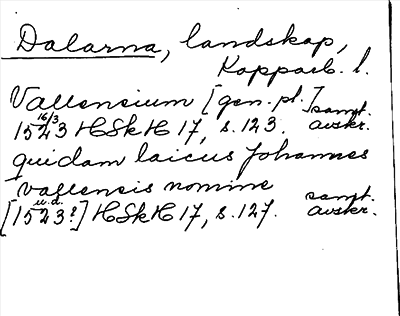 Dalarna, landskap,
Kopparb. l.
Vallensium [gen. pl.] samt.
16/3
1523 HSkH 17, s. 123. avskr.
quidam laicus Johannes
vallensis nomine
u.d. samt.
[1523?] HSkH 17, s. 127. avskr.